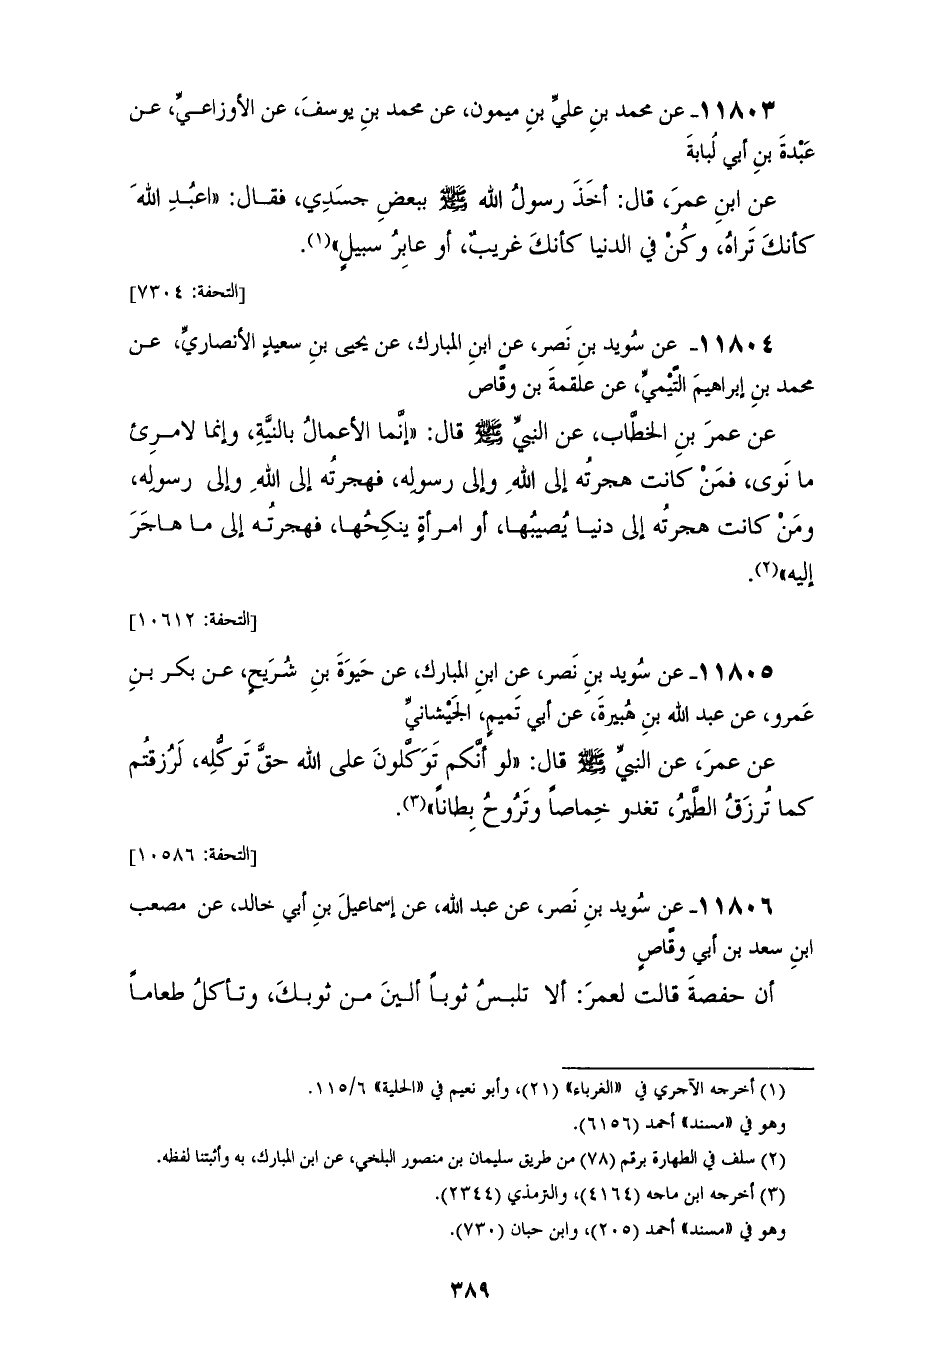 ١١٨٠٣ـ عن محمد بنِ عليٍّ بنِ ميمون، عن محمد بنِ يوسفَ، عن الأوزاعـيِّ، عـن
عَبْدةَ بنِ أبي لُبابةَ
عن ابنِ عمرَ، قال: أخَذَ رسولُ الله ﷺ ببعضِ جسَدِي، فقـال: «اعبُـدِ اللهَ
كأنكَ تَراهُ، وكُنْ في الدنيا كأنكَ غريبٌ، أو عابِرُ سبيلٍ»(١).
[التحفة: ٧٣٠٤]
١١٨٠٤ـ عن سُويد بنِ نَصر، عن ابنِ المبارك، عن يحيى بنِ سعيدٍ الأنصاريِّ، عـن
محمد بنِ إبراهيمَ التَّيْميِّ، عن علقمةَ بن وقَّاص
عن عمرَ بنِ الخطَّاب، عن النبيِّ ﷺ قال: «إنَّما الأعمالُ بالنيَّةِ، وإنما لامـرِئ
ما نَوى، فمَنْ كانت هجرتُه إلى اللهِ وإلى رسولِه، فهجرتُه إلى اللهِ وإلى رسولِه،
ومَنْ كانت هجرتُه إلى دنيـا يُصيبُهـا، أو امـرأةٍ ينكِحُهـا، فهجرتُـه إلى مـا هـاجَرَ
إليه»(٢).
[التحفة: ١٠٦١٢]
١١٨٠٥ـ عن سُويد بنِ نَصر، عن ابنِ المبارك، عن حَيوَةَ بنِ شُـرَيحٍ، عـن بكـر بـنِ
عَمرو، عن عبد الله بنِ هُبيرةَ، عن أبي تَميمٍ، الجَيْشانيِّ
عن عمرَ، عن النبيِّ ﷺ قال: «لو أنَّكم تَوَكَّلونَ على الله حقَّ تَوكُّلِه، لَرُزقتُم
كما تُرزَقُ الطَّيرُ، تغدو خِماصاً وتَرُوحُ بِطاناً»(٣).
[التحفة: ١٠٥٨٦]
١١٨٠٦ـ عن سُويد بنِ نَصر، عن عبد الله، عن إسماعيلَ بنِ أبي خالد، عن مصعب
ابنِ سعد بن أبي وقَّاصٍ
أن حفصةَ قالت لعمرَ: ألا تلبـسُ ثوبـاً ألـينَ مـن ثوبـكَ، وتـأكلُ طعامـاً
(١) أخرجه الآجري في «الغرباء» (٢١)، وأبو نعيم في «الحلية» ١١٥/٦.
وهو في «مسند» أحمد (٦١٥٦).
(٢) سلف في الطهارة برقم (٧٨) من طريق سليمان بن منصور البلخي، عن ابن المبارك، به وأثبتنا لفظه.
(٣) أخرجه ابن ماجه (٤١٦٤)، والترمذي (٢٣٤٤).
وهو في «مسند» أحمد (٢٠٥)، وابن حبان (٧٣٠).
٣٨٩